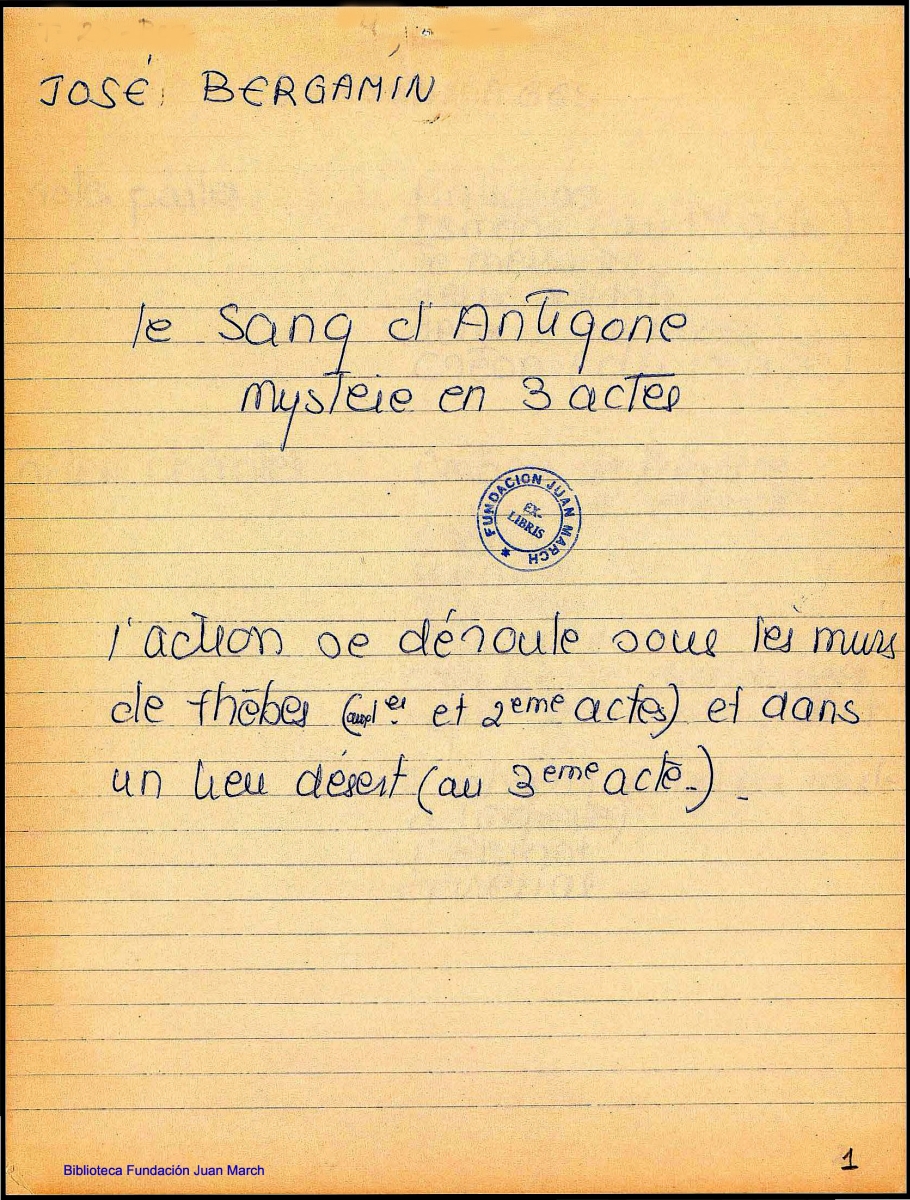 JOSÉ BERGAMIN
le Sang d'Antigone
mystère en 3 actes
FUNDACION JUAN MARCH
EX-
LIBRIS
l'action se déroule sous les murs
de thèbes (aux 1er et 2eme actes) et dans
un lieu désert (au 3eme acte.).
Biblioteca Fundación Juan March
1